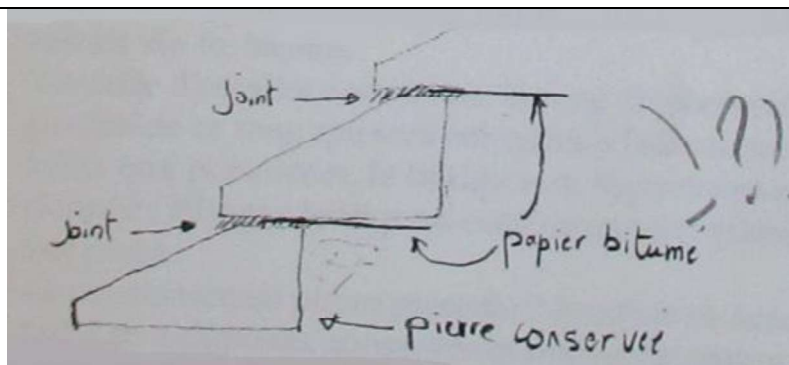 joint
??
joint
papier bitumé
pierre conservée